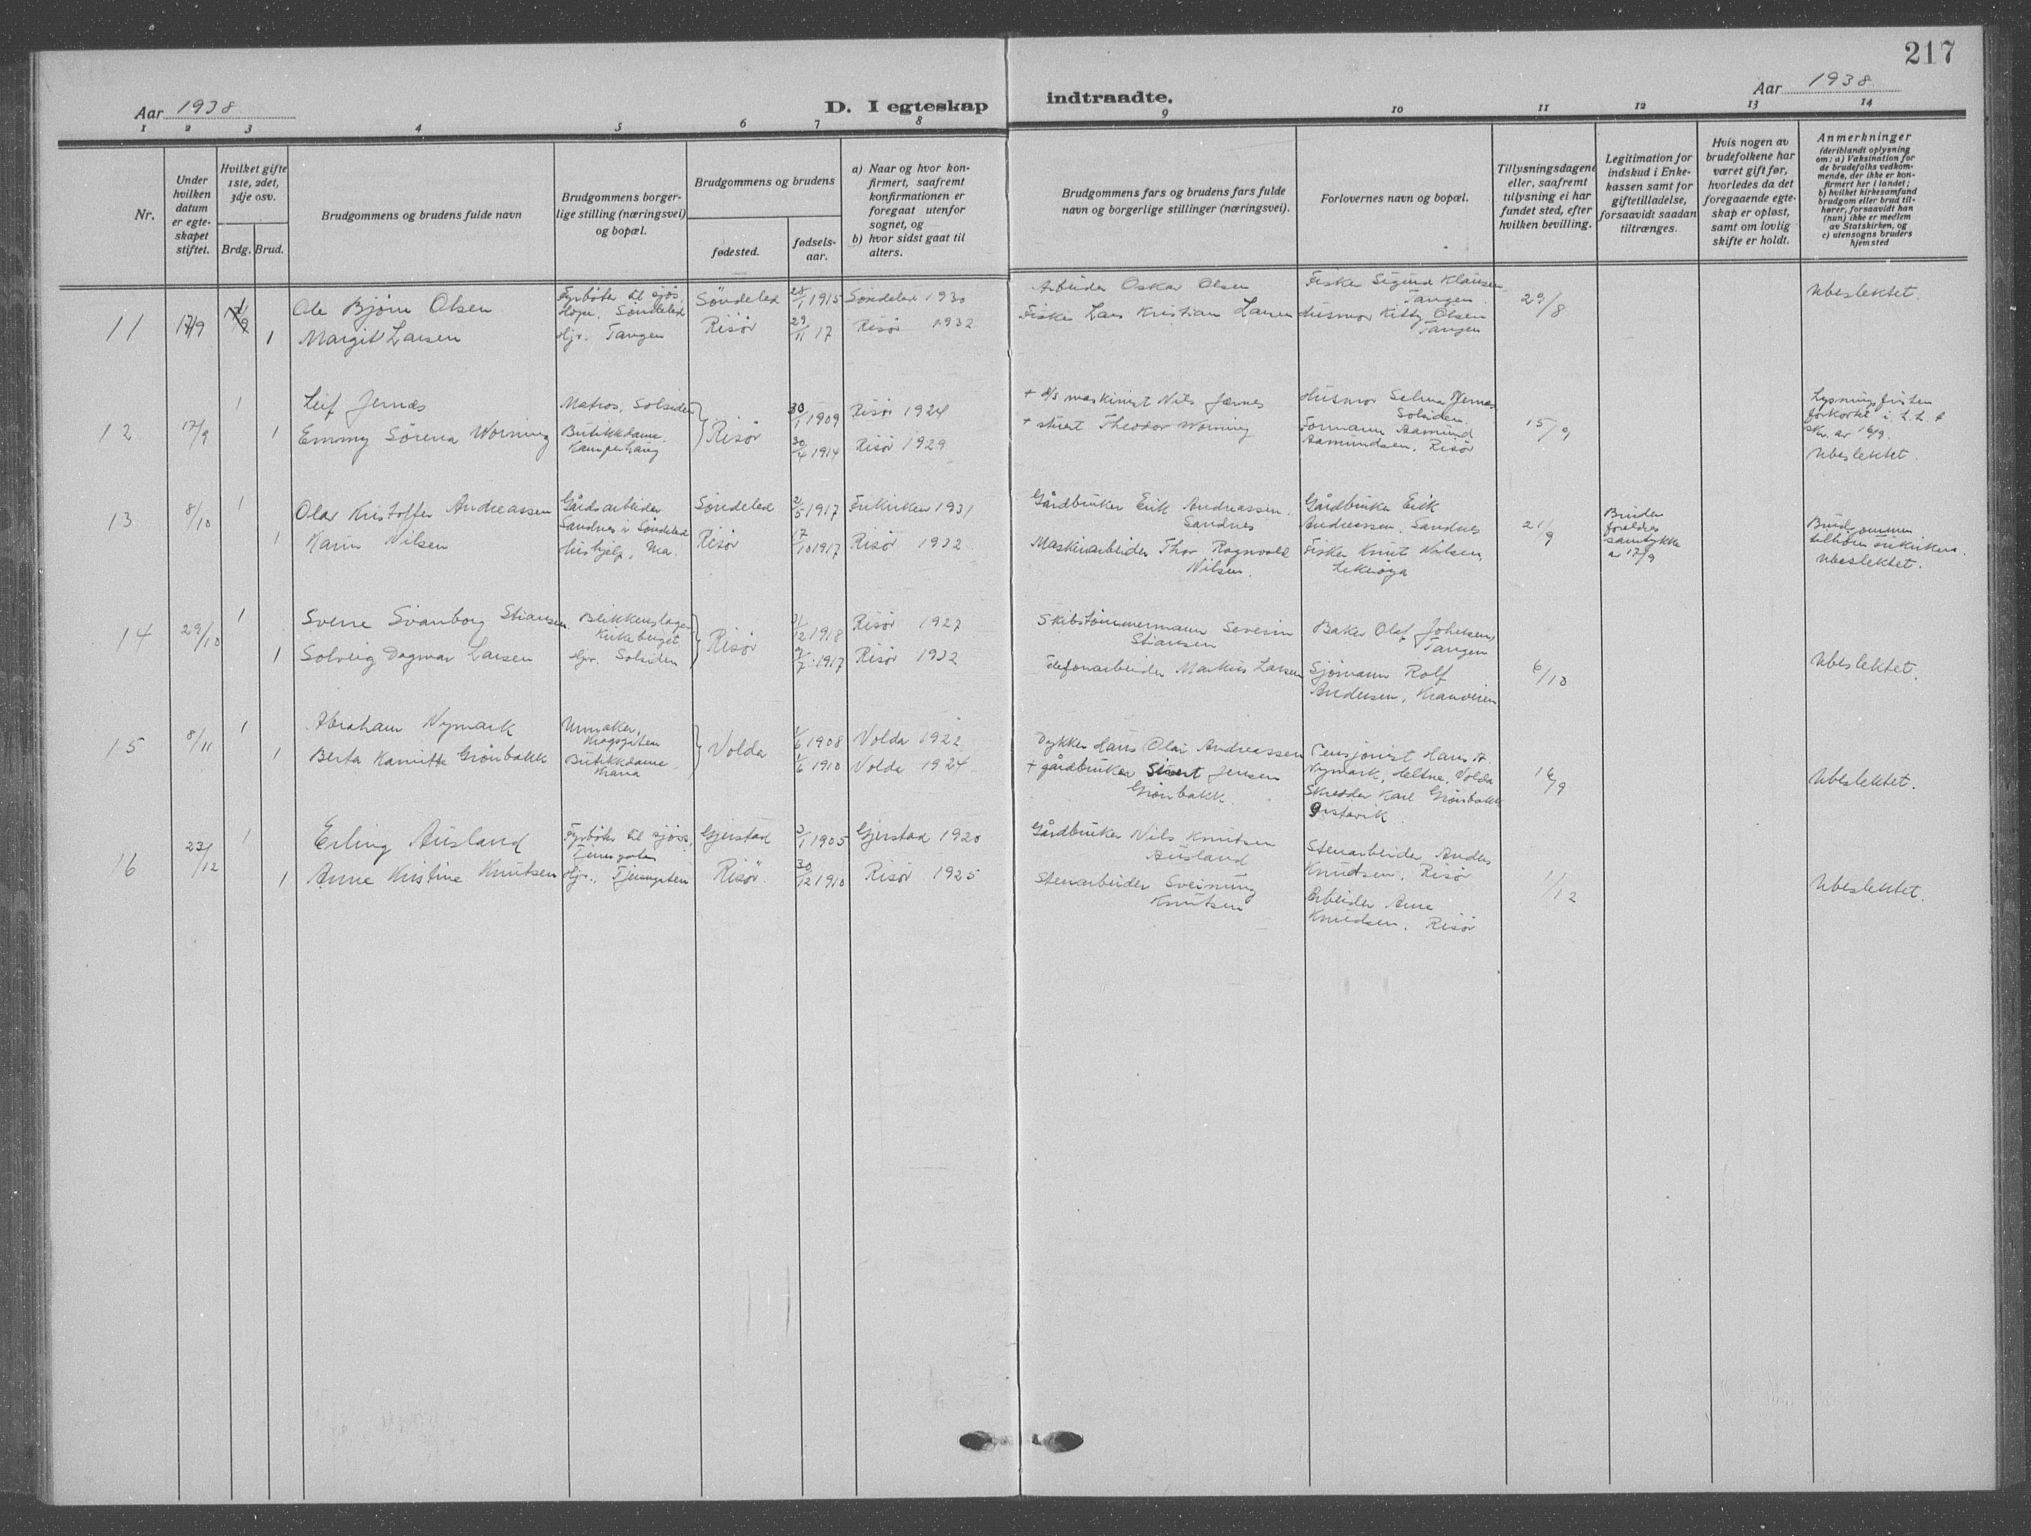 217
Aar 1938
D. I egteskap indtraadte.
Aar 1938
1 2 3 4 5 6 7 8 9 10 11 12 13 14
Nr.
Under hvilken datum er egte-skapet stiftet.
Hvilket gifte 1ste, 2det, 3dje osv.
Brdg. Brud.
Brudgommens og brudens fulde navn
Brudgommens borger-lige stilling (næringsvei) og bopæl.
Brudgommens og brudens
fødested.
fødsels-aar.
a) Naar og hvor kon-firmert, saafremt konfirmationen er foregaat utenfor sognet, og
b) hvor sidst gaat til alters.
Brudgommens fars og brudens fars fulde navn og borgerlige stillinger (næringsvei).
Forlovernes navn og bopæl.
Tillysningsdagene eller, saafremt tillysning ei har fundet sted, efter hvilken bevilling.
Legitimation for indskud i Enke-kassen samt for giftetilladelse, forsaavidt saadan tiltrænges.
Hvis nogen av brudefolkene har været gift før, hvorledes da det foregaaende egte-skap er opløst, samt om lovlig skifte er holdt.
Anmerkninger
(deriblandt oplysning om: a) Vaksination for de brudefolks vedkom-mende, der ikke er kon-firmert her i landet; b) hvilket kirkesamfund brudgom eller brud til-hører, forsaavidt han (hun) ikke er medlem av Statskirken, og c) utensogns bruders hjemsted
11 17/9 Ole Bjørn Olsen Fyrbøter til sjøs, Hope, Søndeled Søndeled 1915 Søndeled 1930 Arbeider Oskar Olsen Fisker Sigurd Klausen Tangen 29/8 Ubeslektet.
1 Margit Larsen Hjv. Tangen Risør 29/11 17 Risør 1932 Fisker Lars Kristian Larsen Husmor Kitty Olsen Tangen
12 17/9 1 Leif Jernæs Matros, Solsiden Risør 30/1 1909 Risør 1924 + maskinist Nils Jærnes Husmor Selma Jernæs Solsiden 15/9 Lysningsfristen forkortet i h. h. t skr. av 16/9.
1 Emmy Sørena Worning Butikkdame, Kamperhaug 30/4 1914 Risør 1929 + stuert Theodor Worning Formann Aamund Aamundsen, Risør Ubeslektet.
13 8/10 1 Olav Kristoffer Andreassen Gårdsarbeider Sandnes i Søndeled Søndeled 2/5 1917 Frikirken 1931 Gårdbruker Eirik Andreassen. Sandnes Gårdbruker Eirik Andreassen, Sandnes 21/9 Brudens foreldres samtykke a 17/9 Brudgommen tilhører Frikirken.
1 Karin Nilsen Hushjelp, Risør 17/10 1917 Risør 1932 Maskinarbeider Thor Ragnvald Nilsen. Fisker Knut Nilsen, Ubeslektet.
14 29/10 1 Sverre Svanborg Stiansen Blikkenslager Kirkeberget Risør 31/12 1918 Risør 1927 Skibstømmermann Severin Stiansen Baker Olaf Johnsen, Tangen
1 Solveig Dagmar Larsen Hjv. Solsiden 9/7 1917 Risør 1932 Telefonarbeider Markus Larsen Sjømann Rolf Andersen, Kranveien 6/10 Ubeslektet.
15 8/11 1 Abraham Nymark Urmaker, Kragsgaten Volda 1/6 1908 Volda 1922 Dykker Hans Olai Andreassen Pensjonist Hans A. Nymark, Heltne, Volda 16/9 Ubeslektet.
1 Berta Kamitta Grønbakk Butikkdame 1/6 1910 Volda 1924 + gårdbruker Sivert Jensen Grønbakk. Skredder Karl Grønbakk Ørstavik.
16 23/12 1 Erling Ausland Fyrbøter til sjøs, Tjennsgaten Gjerstad 3/1 1905 Gjerstad 1920 Gårdbruker Nils Knutsen Ausland Stenarbeider Anders Knudsen, Risør 1/12 Ubeslektet.
1 Anne Kristine Knutsen Hjv., Tjennsgaten Risør. 30/12 1910 Risør 1925 Stenarbeider Sveinung Knutsen Arbeider Arne Knudsen, Risør